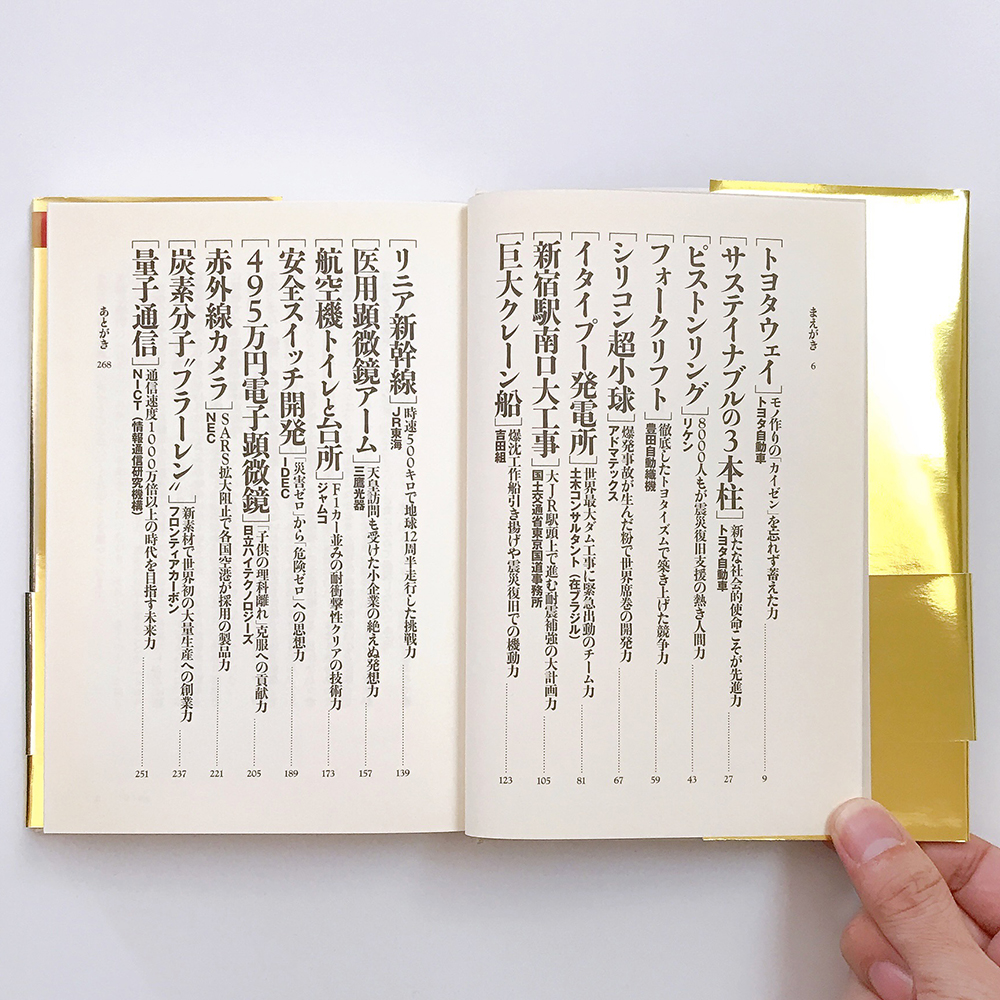 まえがき 6
[トヨタウェイ] モノ作りの「カイゼン」を忘れず蓄えた力 トヨタ自動車 9
[サステイナブルの3本柱] 新たな社会的使命こそが先進力 トヨタ自動車 27
[ピストンリング] 8000人もが震災復旧支援の熱き人間力 リケン 43
[フォークリフト] 徹底したトヨタイズムで築き上げた競争力 豊田自動織機 59
[シリコン超小球] 爆発事故が生んだ粉で世界席巻の開発力 アドマテックス 67
[イタイプー発電所] 世界最大ダム工事に緊急出動のチーム力 土木コンサルタント(在ブラジル) 81
[新宿駅南口大工事] 大JR駅頭上で進む耐震補強の大計画力 国土交通省東京国道事務所 105
[巨大クレーン船] 爆沈工作船引き揚げや震災復旧での機動力 吉田組 123
[リニア新幹線] 時速500キロで地球12周半走行した挑戦力 JR東海 139
[医用顕微鏡アーム] 天皇訪問も受けた小企業の絶えぬ発想力 三鷹光器 157
[航空機トイレと台所] F1カー並みの耐衝撃性クリアの技術力 ジャムコ 173
[安全スイッチ開発] 「災害ゼロ」から「危険ゼロ」への思想力 IDEC 189
[495万円電子顕微鏡] 「子供の理科離れ」克服への貢献力 日立ハイテクノロジーズ 205
[赤外線カメラ] SARS拡大阻止で各国空港が採用の製品力 NEC 221
[炭素分子〝フラーレン〟] 新素材で世界初の大量生産への創業力 フロンティアカーボン 237
[量子通信] 通信速度1000万倍以上の時代を目指す未来力 NICT(情報通信研究機構) 251
あとがき 268